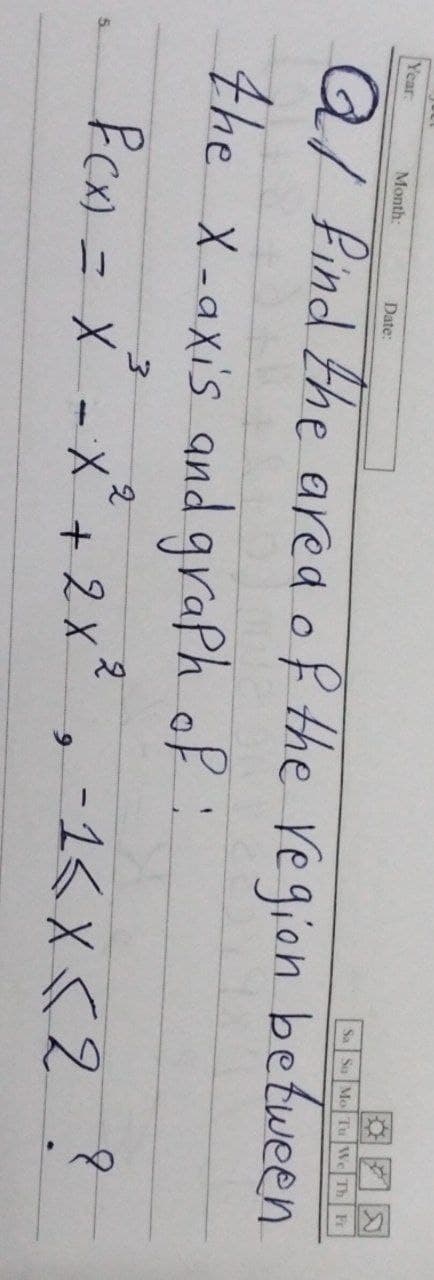 Year: Month: Date:
Sa Su Mo Tu We Th Fr
Q1/ find the area of the region between
the x-axis and graph of:
f(x) = x³ - x² + 2x² , -1 ⩽ x ⩽ 2 . ?
5